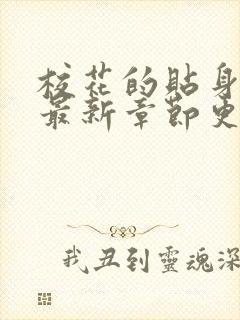 校花的貼身
最新章節史
我丑到靈魂深